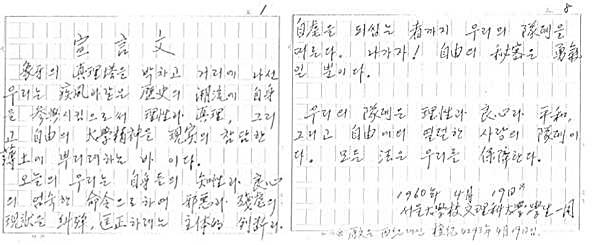 1
宣言文
象牙의 眞理塔을 박차고 거리에 나선
우리는 疾風과같은 歷史의 潮流에 自身
을 參與시킴으로써 理性과 眞理, 그리
고 自由의 大學精神을 現實의 참담한
薄土에 뿌리려하는 바이다.
오늘의 우리는 自身들의 知性과 良心
의 엄숙한 命令으로 하여 邪惡과 殘虐의
現狀을 糾彈, 匡正하려는 主體的 判斷과
8
自虐은 되는 者까지 우리의 隊列을
따른다. 나가자! 自由의 秘密은 勇氣
일 뿐이다.
우리의 隊列은 理性과 良心과 平和,
그리고 自由에의 열렬한 사랑의 隊列이
다. 모든 法은 우리를 保障한다.
1960年 4月 19日
서울大學校文理科大學 學生一同
4293年 4月 19日